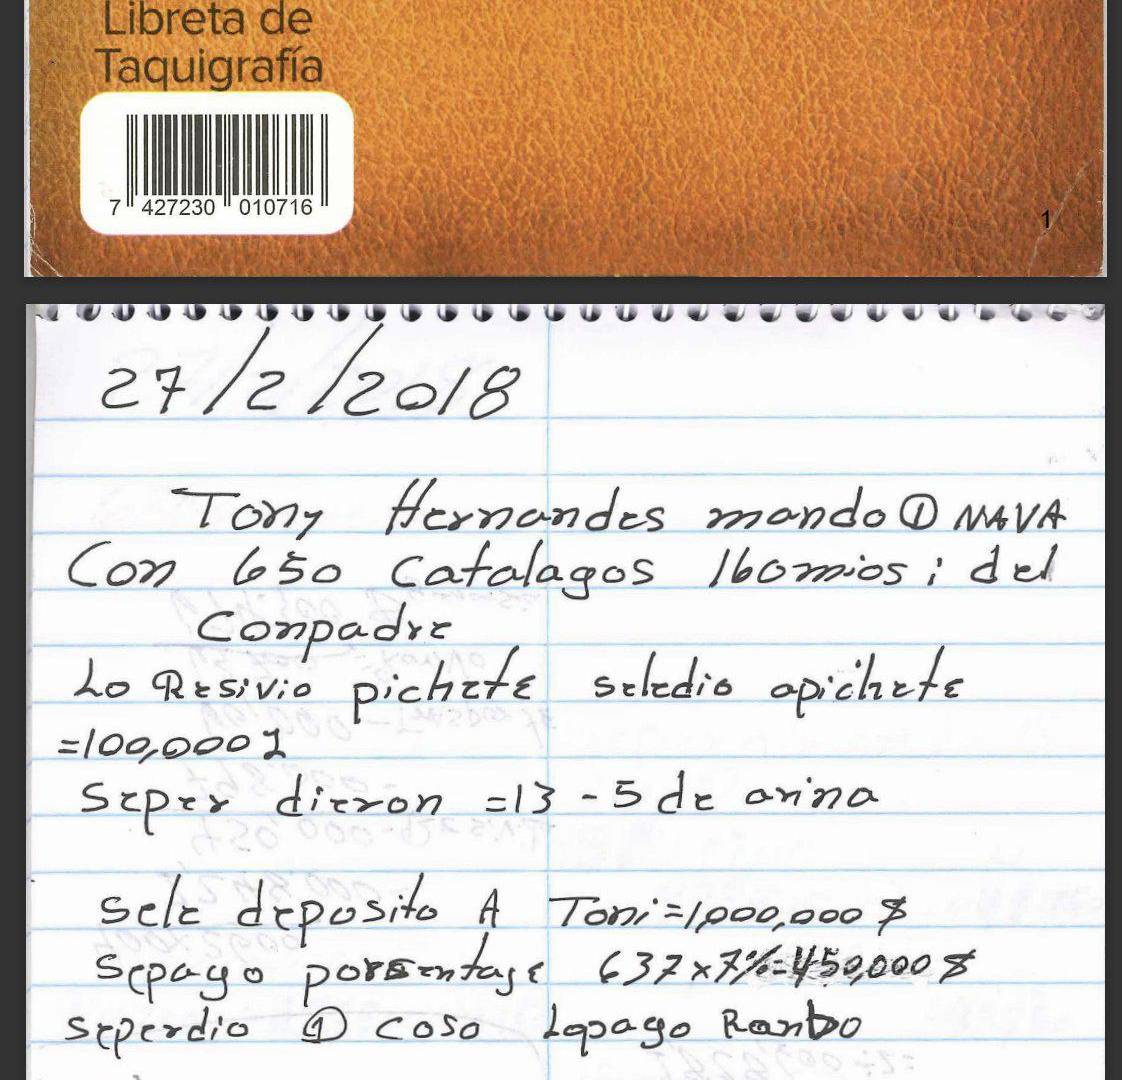 Libreta de
Taquigrafía
7 427230 010716
1
27/2/2018
Tony Hernandes mando ① NAVA
Con 650 Catalagos 160mios; del
Conpadre
Lo Resivio pichete seledio apichete
=100,000
Seper dieron =13 - 5 de arina
Sele deposito A Toni=1,000,000 $
Sepago porsentage 637x7%=450,000 $
seperdio ① coso Lopago Rambo